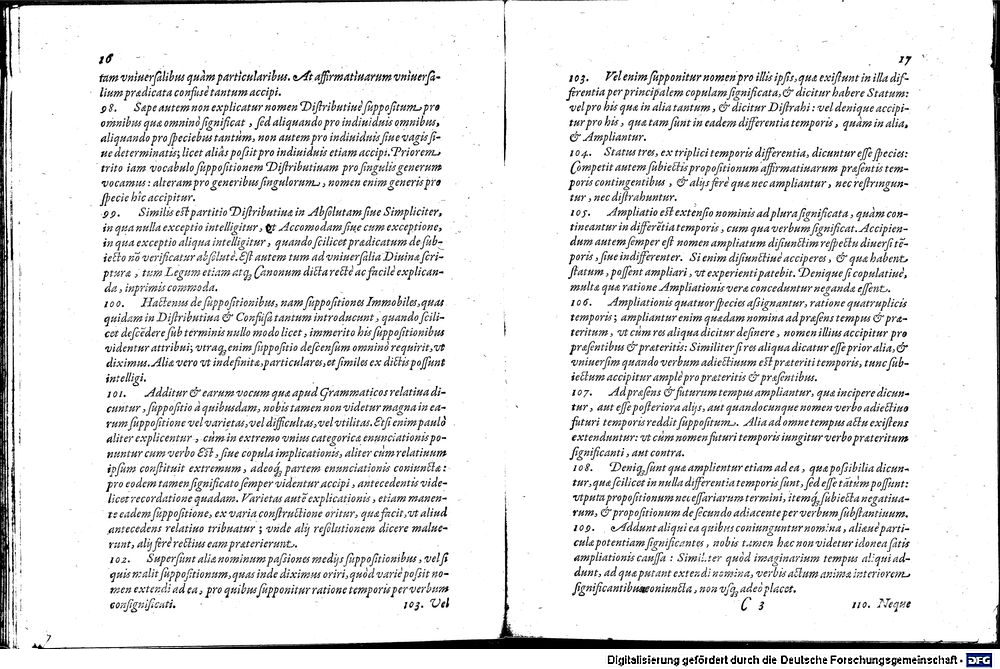 16
tam vniuersalibus quàm particularibus. At affirmatiuarum vniuersa-
lium prædicata confusè tantum accipi.
98. Sæpe autem non explicatur nomen Distributiuè suppositum pro
omnibus quæ omninò significat, sed aliquando pro indiuiduis omnibus,
aliquando pro speciebus tantùm, non autem pro indiuiduis siue vagis si-
ue determinatis; licet aliâs possit pro indiuiduis etiam accipi. Priorem
trito iam vocabulo suppositionem Distributiuam pro singulis generum
vocamus: alteram pro generibus singulorum, nomen enim generis pro
specie hîc accipitur.
99. Similis est partitio Distributiuæ in Absolutam siue Simpliciter,
in qua nulla exceptio intelligitur, vt Accomodam siue cum exceptione,
in qua exceptio aliqua intelligitur, quando scilicet prædicatum de sub-
iecto nõ verificatur absolutè. Est autem tum ad vniuersalia Diuinæ scri-
pturæ, tum Legum etiam atq; Canonum dicta rectè ac facilè explican-
da, inprimis commoda.
100. Hactenus de suppositionibus, nam suppositiones Immobiles, quas
quidam in Distributiua & Confusa tantum introducunt, quando scili-
cet descẽdere sub terminis nullo modo licet, immerito his suppositionibus
videntur attribui; vtraq; enim suppositio descensum omninò requirit, vt
diximus. Aliæ vero vt indefinitæ, particulares, et similes ex dictis possunt
intelligi.
101. Additur & earum vocum quæ apud Grammaticos relatiua di-
cuntur, suppositio à quibusdam, nobis tamen non videtur magna in ea-
rum suppositione vel varietas, vel difficultas, vel vtilitas. Etsi enim paulò
aliter explicentur, cùm in extremo vnius categoricæ enunciationis po-
nuntur cum verbo Est, siue copula implicationis, aliter cùm relatiuum
ipsum constituit extremum, adeoq; partem enunciationis coniunctæ:
pro eodem tamen significato semper videntur accipi, antecedentis vide-
licet recordatione quadam. Varietas autẽ explicationis, etiam manen-
te eadem suppositione, ex varia constructione oritur, quæ facit, vt aliud
antecedens relatiuo tribuatur; vnde alij resolutionem dicere malue-
runt, alij ferè rectius eam præterierunt.
102. Supersunt aliæ nominum passiones medijs suppositionibus, vel si
quis malit suppositionum, quas inde diximus oriri, quòd variè possit no-
men extendi ad ea, pro quibus supponitur ratione temporis per verbum
consignificati. 103. Vel
17
103. Vel enim supponitur nomen pro illis ipsis, quæ existunt in illa dif-
ferentia per principalem copulam significata, & dicitur habere Statum:
vel pro his quæ in alia tantum, & dicitur Distrahi: vel denique accipi-
tur pro his, quæ tam sunt in eadem differentia temporis, quàm in alia,
& Ampliantur.
104. Status tres, ex triplici temporis differentia, dicuntur esse species:
Competit autem subiectis propositionum affirmatiuarum præsentis tem-
poris contingentibus, & alijs ferè quæ nec ampliantur, nec restringun-
tur, nec distrahuntur.
105. Ampliatio est extensio nominis ad plura significata, quàm con-
tineantur in differẽtia temporis, cum qua verbum significat. Accipien-
dum autem semper est nomen ampliatum disiunctim respectu diuersi tẽ-
poris, siue indifferenter. Si enim disiunctiuè acciperes, & quæ habent
statum, possent ampliari, vt experienti patebit. Denique si copulatiuè,
multæ quæ ratione Ampliationis veræ conceduntur negandæ essent.
106. Ampliationis quatuor species assignantur, ratione quatruplicis
temporis; ampliantur enim quædam nomina ad præsens tempus & præ-
teritum, vt cùm res aliqua dicitur desinere, nomen illius accipitur pro
præsentibus & præteritis: Similiter si res aliqua dicatur esse prior alia, &
vniuersim quando verbum adiectiuum est præteriti temporis, tunc sub-
iectum accipitur amplè pro præteritis & præsentibus.
107. Ad præsens & futurum tempus ampliantur, quæ incipere dicun-
tur, aut esse posteriora alijs, aut quandocunque nomen verbo adiectiuo
futuri temporis reddit suppositum. Alia ad omne tempus actu existens
extenduntur: vt cùm nomen futuri temporis iungitur verbo præteritum
significanti, aut contra.
108. Deniq; sunt quæ amplientur etiam ad ea, quæ possibilia dicun-
tur, quæ scilicet in nulla differentia temporis sunt, sed esse tãtùm possunt:
vtputa propositionum necessariarum termini, itemq; subiecta negatiua-
rum, & propositionum de secundo adiacente per verbum substantiuum.
109. Addunt aliqui ea quibus coniunguntur nomina, aliauè parti-
culæ potentiam significantes, nobis tamen hæc non videtur idonea satis
ampliationis caussa: Similiter quòd imaginarium tempus aliqui ad-
dunt, ad quæ putant extendi nomina, verbis actum animæ interiorem
significantibus coniuncta, non vsq; adeò placet.
C 3 110. Neque
Digitalisierung gefördert durch die Deutsche Forschungsgemeinschaft - DFG